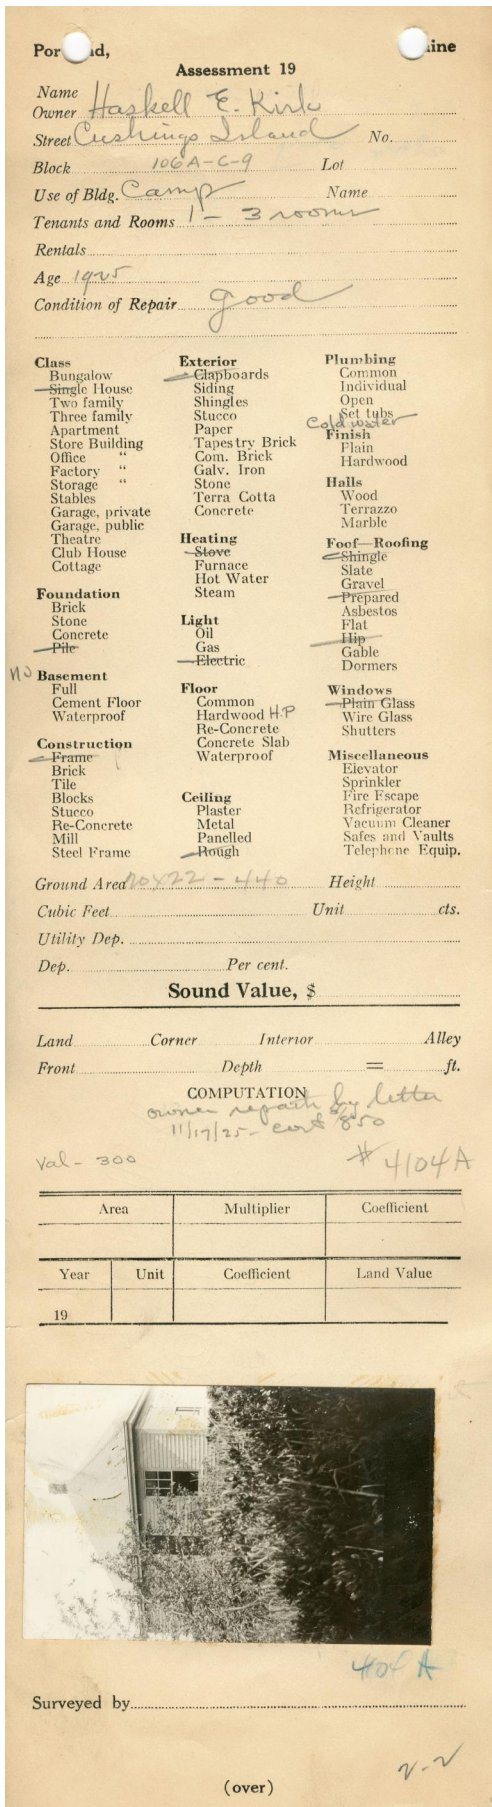 Por nd, ine
Assessment 19
Name
Owner Haskell E. Kirk
Street Cushings Island No.
Block 106A-C-9 Lot
Use of Bldg. Camp Name
Tenants and Rooms 1 - 3 rooms
Rentals
Age 1925
Condition of Repair good
Class
Bungalow
Single House
Two family
Three family
Apartment
Store Building
Office "
Factory "
Storage "
Stables
Garage, private
Garage, public
Theatre
Club House
Cottage
Foundation
Brick
Stone
Concrete
Pile
no Basement
Full
Cement Floor
Waterproof
Construction
Frame
Brick
Tile
Blocks
Stucco
Re-Concrete
Mill
Steel Frame
Exterior
Clapboards
Siding
Shingles
Stucco
Paper
Tapestry Brick
Com. Brick
Galv. Iron
Stone
Terra Cotta
Concrete
Heating
Stove
Furnace
Hot Water
Steam
Light
Oil
Gas
Electric
Floor
Common
Hardwood H.P
Re-Concrete
Concrete Slab
Waterproof
Ceiling
Plaster
Metal
Panelled
Rough
Plumbing
Common
Individual
Open
Set tubs
Cold water
Finish
Plain
Hardwood
Halls
Wood
Terrazzo
Marble
Foof—Roofing
Shingle
Slate
Gravel
Prepared
Asbestos
Flat
Hip
Gable
Dormers
Windows
Plain Glass
Wire Glass
Shutters
Miscellaneous
Elevator
Sprinkler
Fire Escape
Refrigerator
Vacuum Cleaner
Safes and Vaults
Telephone Equip.
Ground Area 20x22 - 440 Height
Cubic Feet Unit cts.
Utility Dep.
Dep. Per cent.
Sound Value, $
Land Corner Interior Alley
Front Depth = ft.
COMPUTATION
owner by letter
11/17/25 - cost $850
Val - 300 # 4104A
Area Multiplier Coefficient
Year Unit Coefficient Land Value
19
404 A
Surveyed by
2-2
(over)